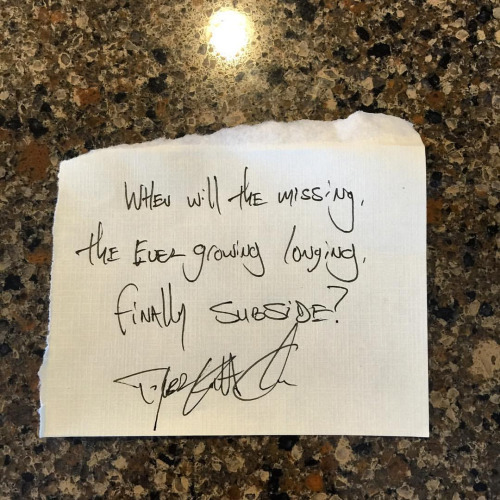 When will the missing,
the Ever growing longing,
finally subside?
Tyler